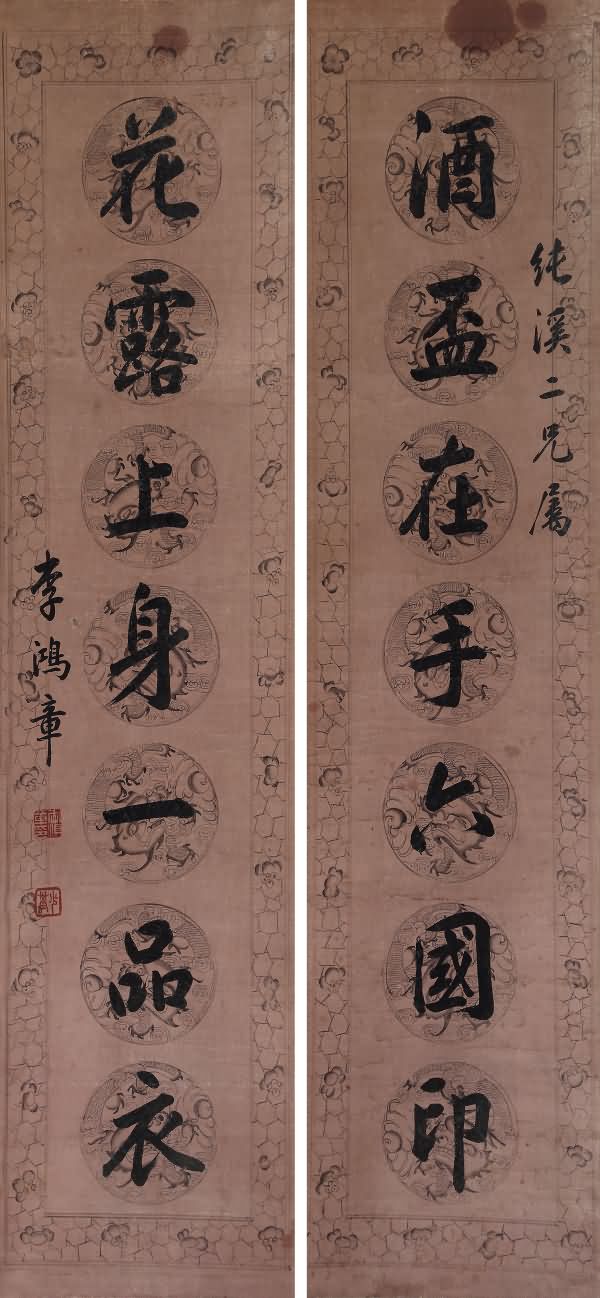 純溪二兄属
酒盃在手六國印
花露上身一品衣
李鴻章